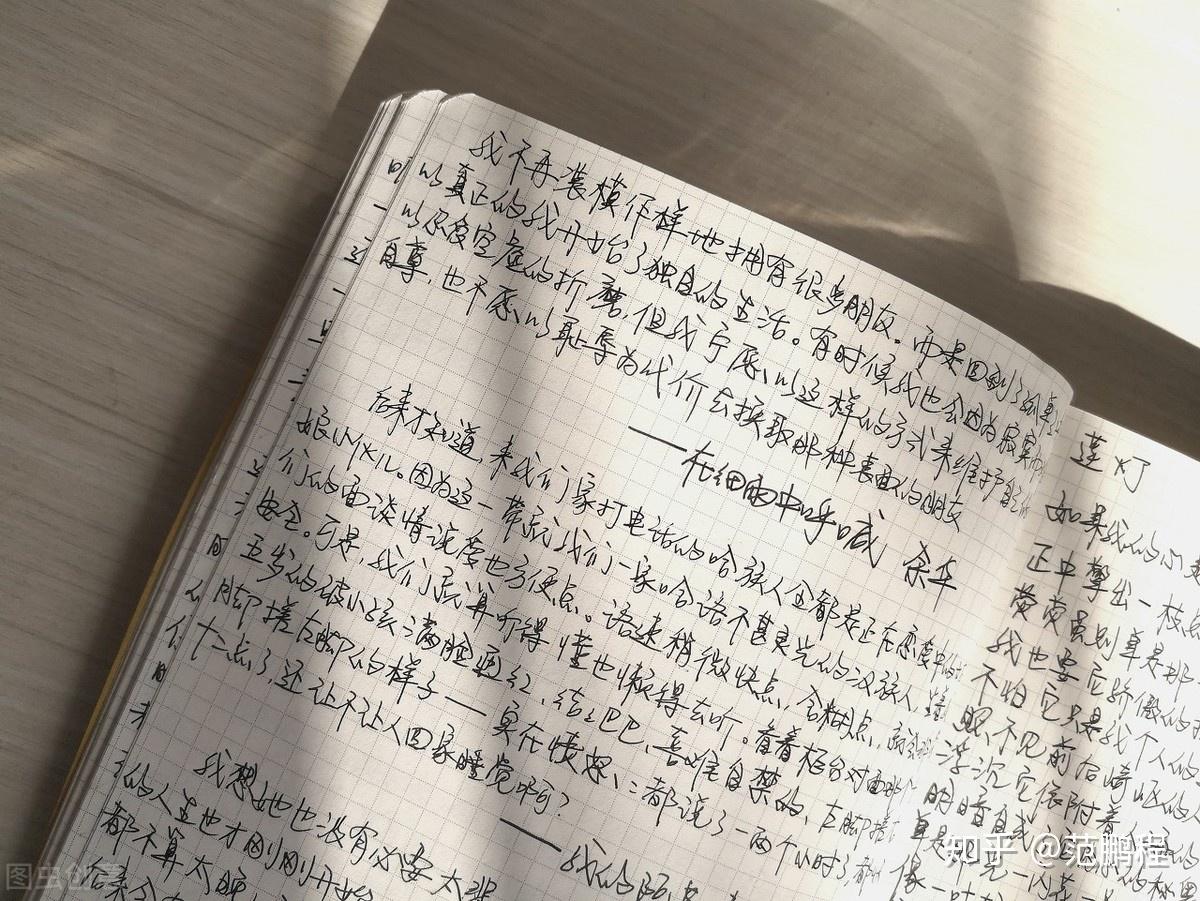 我不再装模作样地拥有很多朋友。而是回到了孤单之
以真正的我开始了独自的生活。有时候我也会因为寂寞而
以忍受空虚的折磨,但我宁愿以这样的方式来维护自己的
自尊,也不愿以耻辱为代价去换取那种表面的朋友
——在细雨中呼喊 余华
后来才知道,来我们家打电话的哈族人全都是正在恋爱中的
娘小伙儿。因为这一带就我们一家哈语不甚灵光的汉族人,
们的面谈情说爱也方便点。语速稍微快点,含糊点,
安全。可是,我们就算听得懂也懒得去听。看着柜台对面那个
五岁的破小孩满脸通红、结结巴巴、喜难自禁的、左脚搓
脚搓左脚的样子——实在愤怒、:都说了一两个小时了,都
十二点了,还让不让人回家睡觉啊?
——我的阿
我想她也没有必要太悲
的人生也才刚刚开始
都不算太晚
莲灯
如果我的心
正中擎出一枝
荧荧虽则单是那
我也要它骄傲的
不怕它只是我个人的
照不见前后崎岖的
浮沉它依附着人
明暗自
单是那光一闪花
像一叶
知乎 @范鹏程
图虫创意